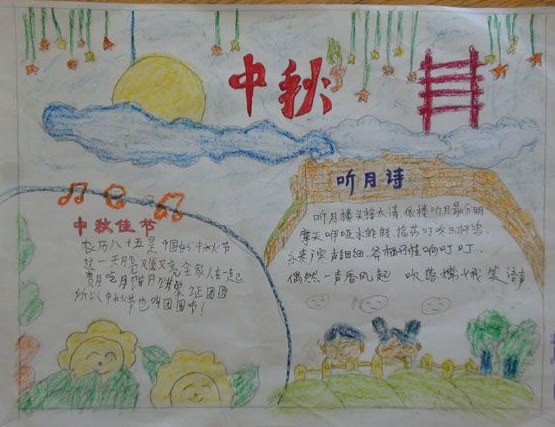 中秋
听月诗
听月楼头接太清.依楼听月最分明
摩天咿哑冰轮转.捣药叮咚玉杵鸣
乐奏广 声细细.斧柯丹桂响叮叮.
偶然一声香风起 吹落嫦娥笑语声
中秋佳节
农历八十五是中国的中秋节
这一天月亮又圆又亮全家人在一起
赏月吃月饼月饼象征团圆
所以中秋节也叫团圆节!